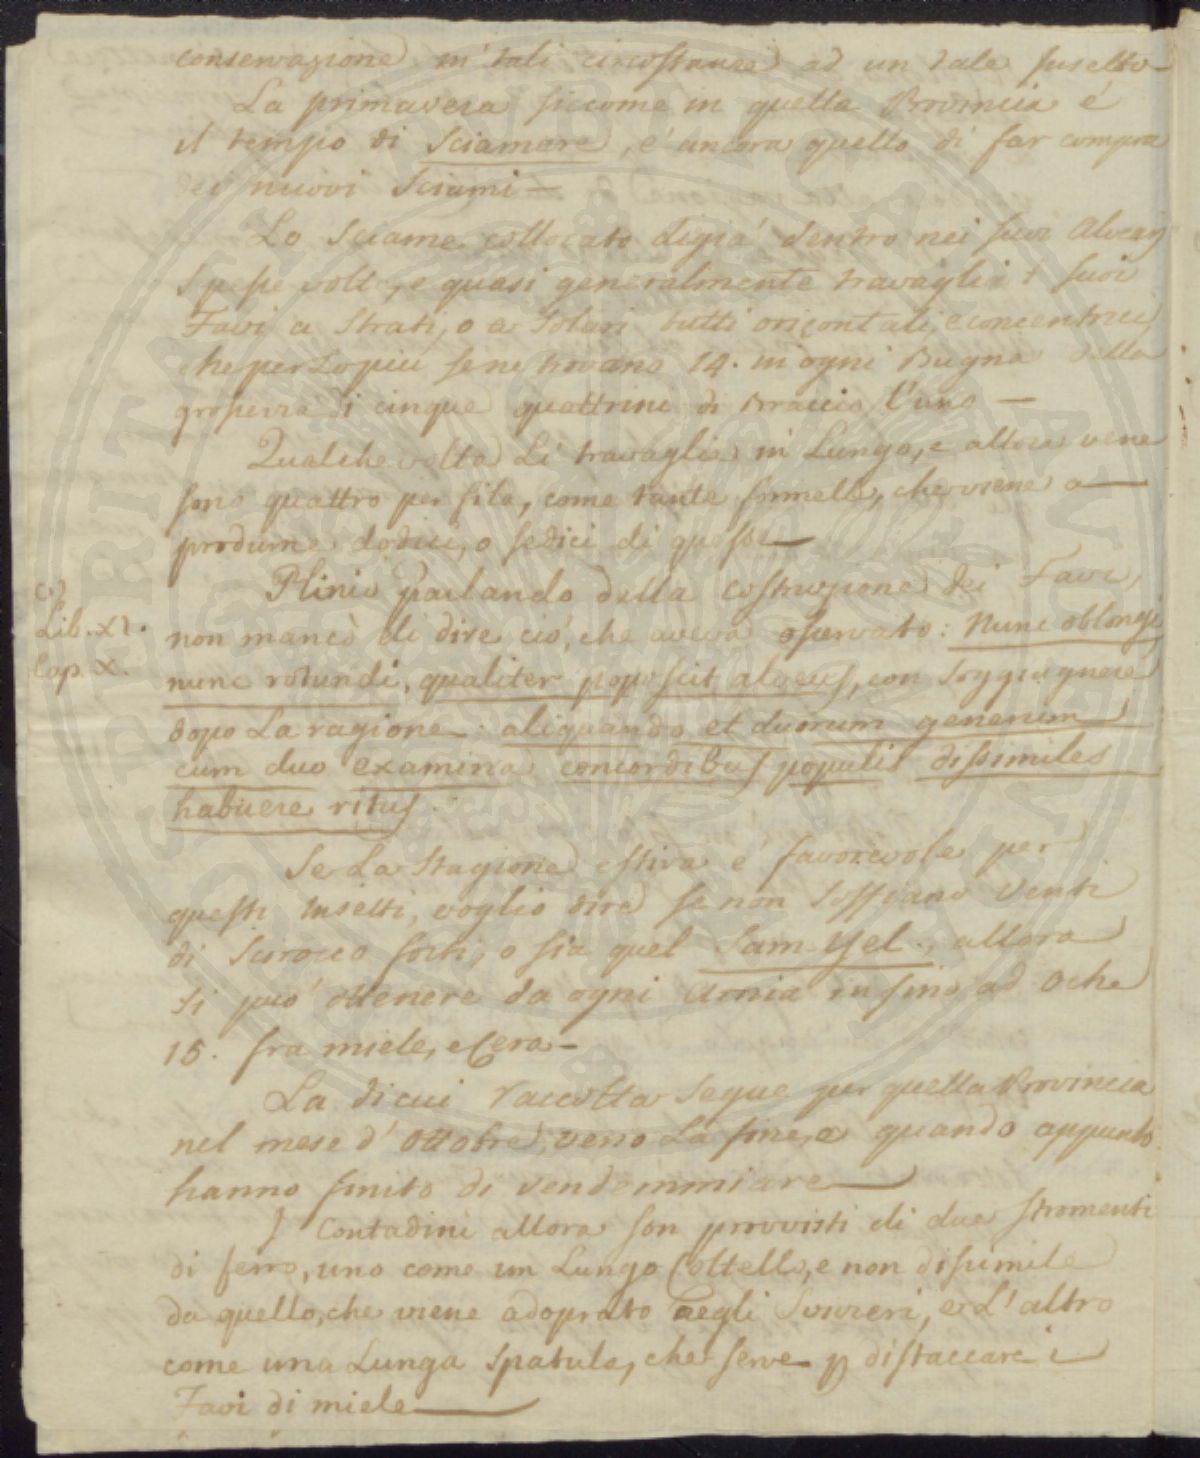 conservazione in tali circostanze ad un tale Insetto—
La primavera siccome in quella Provincia é
il tempo di Sciamare, é ancora quello di far compra
dei nuovi Sciami—
Lo Sciame collocato digia' dentro nei suoi Alvearj
Spesse volte, e quasi generalmente travaglia i suoi
Favi a Strati, o a Solari tutti orizontali, e concentrici
che per Lo piu se ne trovano 14. in ogni Bugna della
grossezza di cinque quattrini di Braccio l'uno—
Qualche volta Li travaglia in Lungo, e allora vene
sono quattro per fila, come tante formelle, che viene a—
produrne dodici, o sedici di queste—
Plinio parlando della costruzione dei Favi,
(c)
Lib. XI.
Cap. X.
non mancò di dire ció, che aveva osservato: Nunc oblongi
nunc rotundi, qualiter poposcit alveus, con soggiugnere
dopo La ragione: aliquando et duorum generum
cum duo examina concordibus populis dissimiles
habuere ritus.
Se La Stagione estiva e' favorevole per
questi Insetti, voglio dire se non soffiano Venti
di Scirocco forti, o sia quel Sam-Yel, allora
si può ottenere da ogni Arnia infino ad Oche
15. fra miele, e Cera—
La di cui raccolta segue per quella Provincia
nel mese d' Ottobre, verso La fine, e quando appunto
hanno finito di vendemmiare—
I Contadini allora son provvisti di due stromenti
di ferro, uno come un Lungo Coltello, e non dissimile
da quello, che viene adoprato negli Svizzeri, e L' altro
come una Lunga Spatula, che serve p distaccare i
Favi di miele—